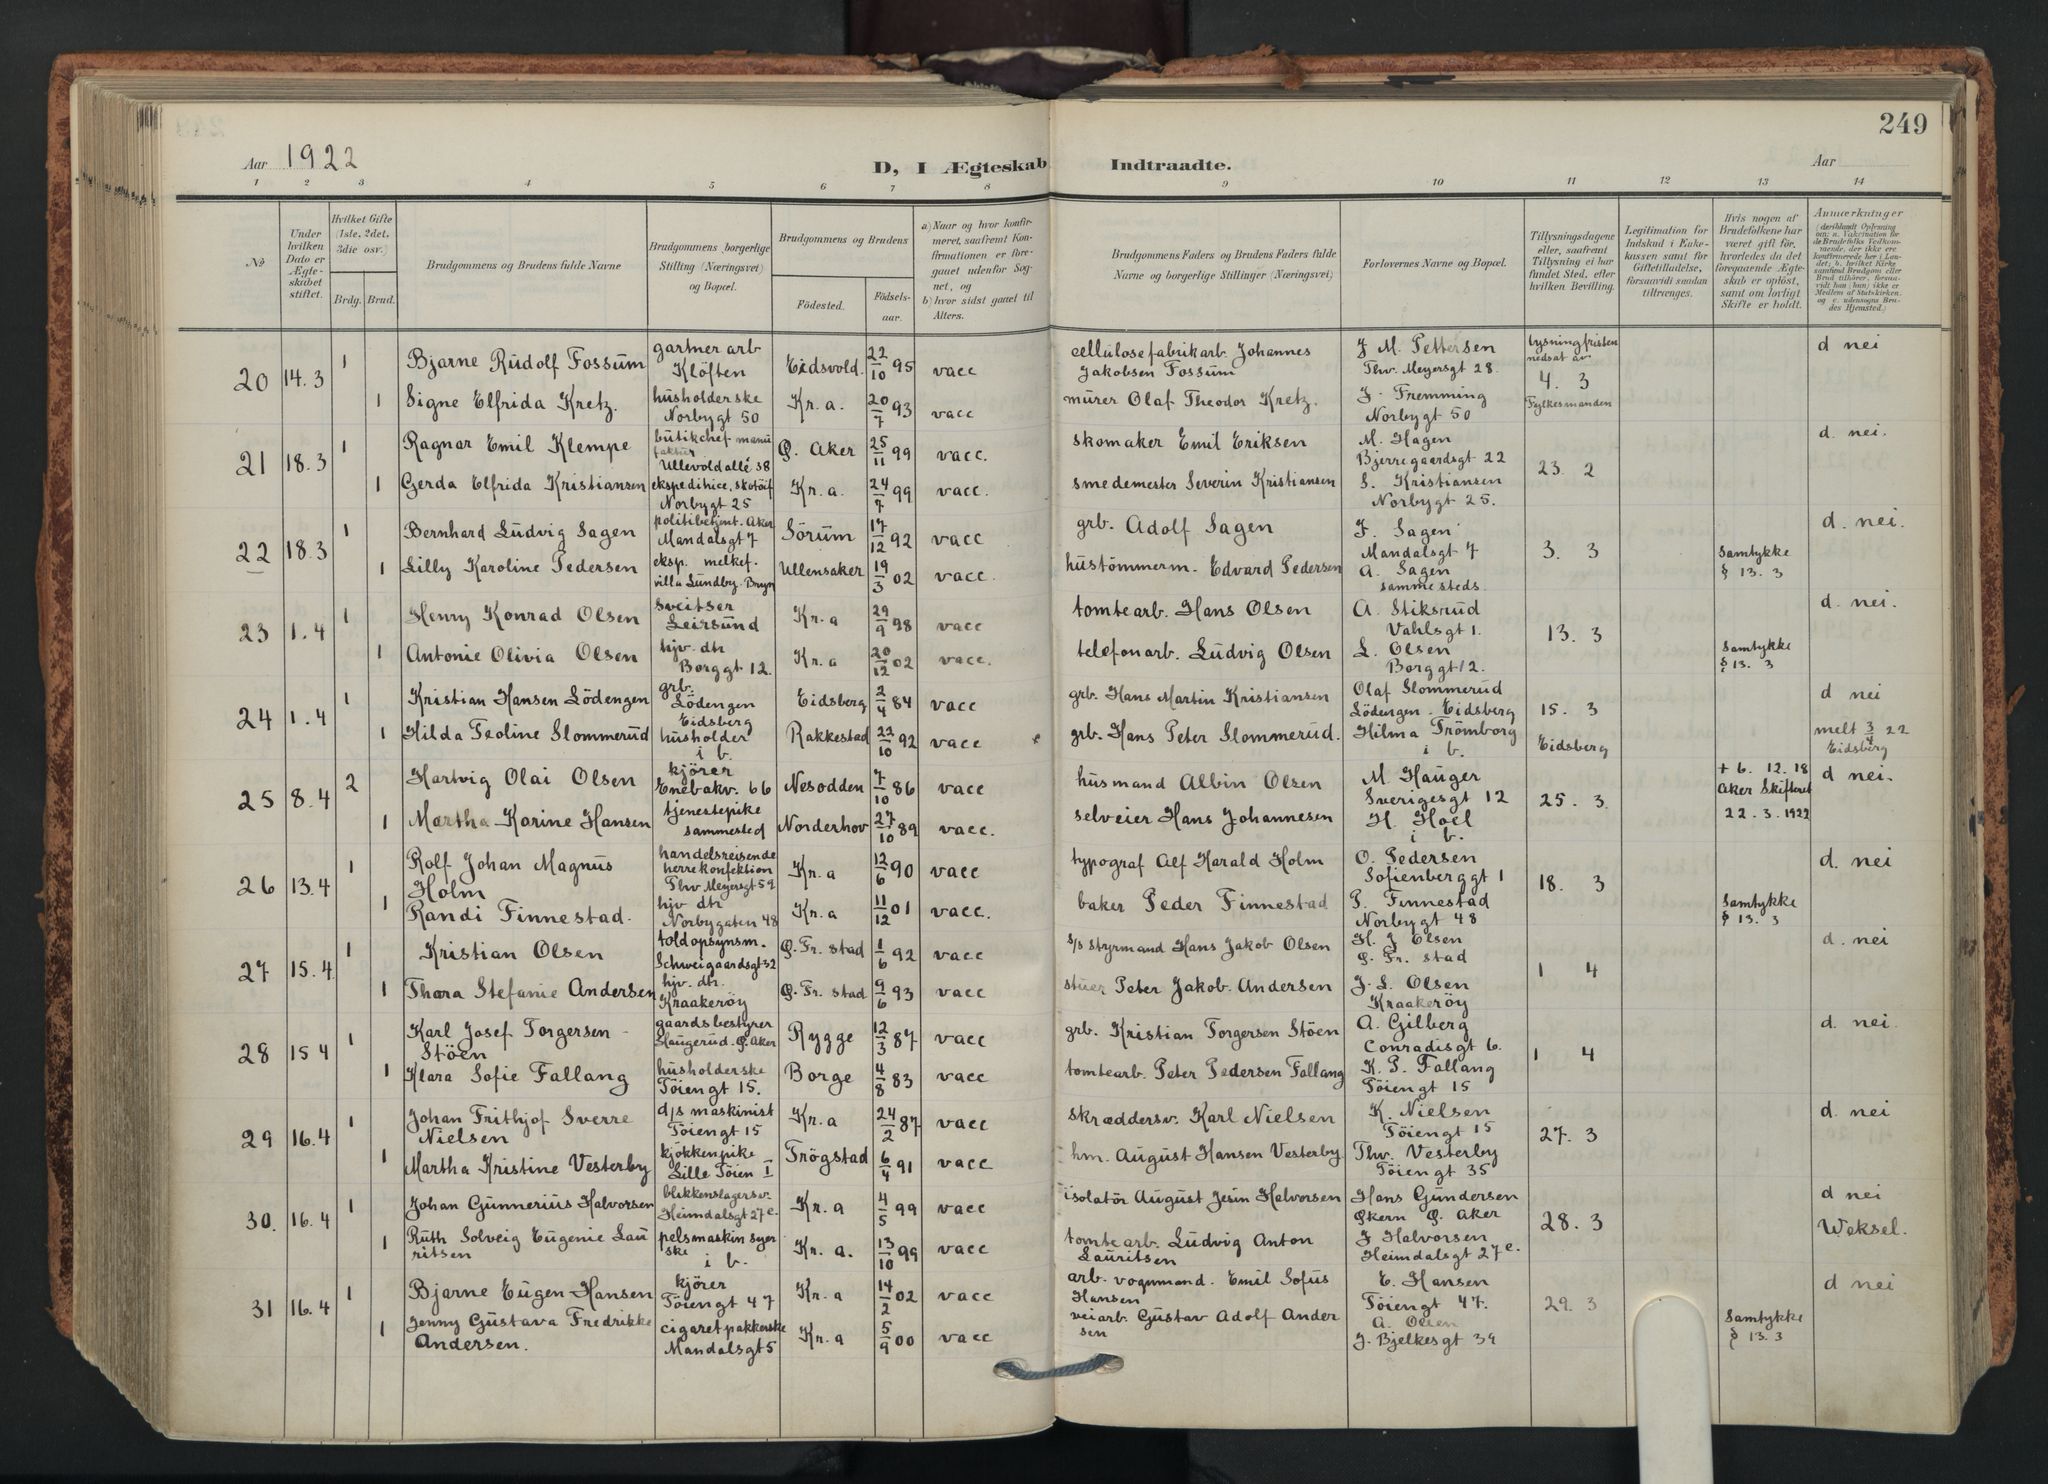 249
Aar 1922
D, I Ægteskab Indtraadte.
Aar
1 2 3 4 5 6 7 8 9 10 11 12 13 14
No
Under hvilken Dato er Ægteskabet stiftet.
Hvilket Gifte (1ste, 2det, 3die osv.)
Brdg. Brud.
Brudgommens og Brudens fulde Navne
Brudgommens borgerlige Stilling (Næringsvei) og Bopæl.
Brudgommens og Brudens
Fødested. Fødselsaar.
a) Naar og hvor konfirmeret, saafremt Konfirmationen er foregaaet udenfor Sognet, og
b) hvor sidst gaaet til Alters.
Brudgommens Faders og Brudens Faders fulde Navne og borgerlige Stillinger (Næringsvei)
Forlovernes Navne og Bopæl.
Tillysningsdagene eller, saafremt Tillysning ei har fundet Sted, efter hvilken Bevilling.
Legitimation for Indskud i Enkekassen samt for Giftetilladelse, forsaavidt saadan tiltrænges.
Hvis nogen af Brudefolkene har været gift før, hvorledes da det foregaaende Ægteskab er opløst, samt om lovligt Skifte er holdt.
Anmærkninger
20 14.3 1 Bjarne Rudolf Fossum gartner arb Kløften Eidsvold. 22/10 95 vacc cellulosefabrikarb. Johannes Jakobsen Fossum J. M. Pettersen Thv. Meyersgt 28. tysningfristen nedsat av 4. 3 Fylkesmanden d nei
1 Signe Elfrida Kretz. husholderske Norbygt 50 Kr.a. 20/7 93 vacc murer Olaf Theodor Kretz. J. Fremming Norbygt 50
21 18.3 1 Ragnar Emil Klempe butikchef manufaktur Ullevoldallé 38 Ø. Aker 25/11 99 vacc. skomaker Emil Eriksen M. Hagen Bjerregaardsgt 22 23. 2 d. nei.
1 Gerda Elfrida Kristiansen ekspeditrice, skotöif Norbygt 25 Kr.a. 24/7 99 vacc. smedemester Severin Kristiansen S. Kristiansen Norbygt 25.
22 18.3 1 Bernhard Ludvig Sagen politibetjent. Aker Mandalsgt 7 Sörum 17/12 92 vacc grb. Adolf Sagen J. Sagen Mandalsgt 7 3. 3 d. nei.
1 Lilly Karoline Pedersen eksp. melkef. villa Lundby. Bryn Ullensaker 19/3 02 vacc. hustömmerm. Edvard Pedersen A. Sagen sammesteds. Samtykke § 13. 3
23 1.4 1 Henry Konrad Olsen sveitser Leirsund Kr.a 29/9 98 vacc tomtearb. Hans Olsen A. Stiksrud Vahlsgt 1. 13. 3 d. nei.
1 Antonie Olivia Olsen hjv. dtr Borggt 12. Kr.a 20/12 02 vacc. telefonarb. Ludvig Olsen L. Olsen Borggt 12. Samtykke § 13. 3
24 1.4 1 Kristian Hansen Lödengen grb. Lödengen Eidsberg Eidsberg 2/4 84 vacc grb. Hans Martin Kristiansen Olaf Slommerud Lödengen. Eidsberg 15. 3 Eidsberg d nei
1 Hilda Teoline Slommerud husholder i b. Rakkestad 22/10 92 vacc grb. Hans Peter Slommerud. Hilma Trömborg i b. melt 3/4 22 Eidsberg
25 8.4 2 Hartvig Olai Olsen kjörer Enebakv. 66 Nesodden 7/10 86 vacc husmand Albin Olsen M. Hauger Sverigesgt 12 25. 3. + 6. 12. 18 Aker Skifteret 22. 3. 1922 d nei.
1 Martha Karine Hansen tjenestepike sammested Norderhov 27/10 89 vacc. selveier Hans Johannesen H. Hoel i b.
26 13.4 1 Rolf Johan Magnus Holm handelsreisende herrekonfektion Thv Meyersgt 59 Kr.a 12/6 90 vacc typograf Alf Harald Holm O. Pedersen Sofienberggt 1 18. 3 d. nei
1 Randi Finnestad. hjv dtr Norbygaten 48 Kr.a 11/12 01 vacc. baker Peder Finnestad P. Finnestad Norbygt 48 Samtykke § 13. 3
27 15.4 1 Kristian Olsen toldopsynsm. Schweigaardsgt 32 Ø. Fr. stad 1/6 92 vacc s/s styrmand Hans Jakob Olsen H. J Olsen Ø. Fr. stad 1 4 d. nei
1 Thora Stefanie Andersen hjv. dtr. Kraakeröy Ø. Fr. stad 9/6 93 vacc stuer Peter Jakob. Andersen J. L. Olsen Kraakeröy
28 15 4 1 Karl Josef Torgersen - Stöen gaardsbestyrer Haugerud. Ø. Aker Rygge 12/3 87 vacc grb. Kristian Torgersen Stöen A. Gilberg Conradisgt 6. 1 4 d. nei
1 Klara Sofie Fallang husholderske Töiengt 15. Borge 4/8 83 vacc tomtearb. Peter Pedersen Fallang K. P. Fallang Töiengt 15
29 16.4 1 Johan Frithjof Sverre Nielsen d/s maskinist Töiengt 15 Kr.a 24/2 87 vacc skræddersv. Karl Nielsen K. Nielsen Töiengt 15 27. 3 d. nei
1 Martha Kristine Vesterby kjökkenpike Lille Töien I Trögstad 6/4 91 vacc hm. August Hansen Vesterby Thv. Vesterby Töiengt 35
30. 16.4 1 Johan Gunnerius Halvorsen blikkenslagersv. Heimdalsgt 27 e. Kr.a 4/5 99 vacc isolatör August Jesin Halvorsen Hans Gundersen Økern Ø. Aker 28. 3 d nei
1 Ruth Solveig Eugenie Lauritsen pelsmaskin syerske i b. Kr.a. 13/10 99 vacc tomtearb. Ludvig Anton Lauritsen J Halvorsen Heimdalsgt 27 e. Weksel.
31 16.4 1 Bjarne Eugen Hansen kjörer Töiengt 47 Kr.a 14/2 02 vacc arb. vognmand. Emil Sofus Hansen E. Hansen Töiengt 47. 29. 3 d nei
1 Jenny Gustava Fredrikke Andersen. cigaretpakkerske Mandalsgt 5 Kr.a 5/9 00 vacc veiarb. Gustav Adolf Andersen A. Olsen J. Bjelkesgt 39 Samtykke § 13. 3